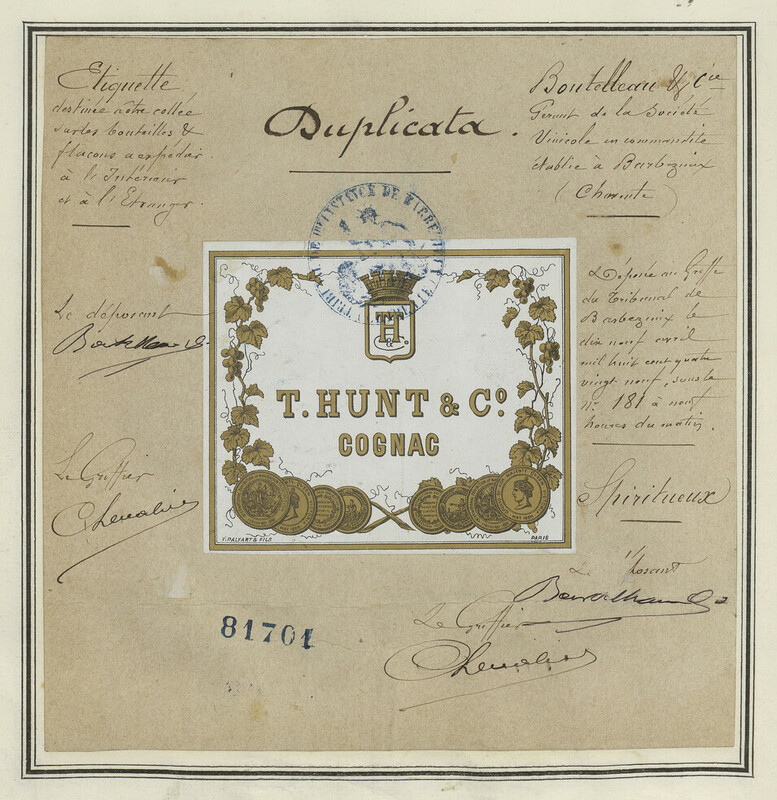 Etiquette
destinée à être collée
sur les bouteilles &
flacons à expédier
à l'Intérieur
et à l'Etranger.
Duplicata.
Boutelleau & Cie
Gérant de la Société
Vinicole en commandite
établie à Barbezieux
(Charente)
Le déposant
Boutelleau & Co
Le Greffier
Chevalier
TH
& Co.
T. HUNT & Co
COGNAC
V. PALYART & FILS
PARIS
Déposée au Greffe
du Tribunal de
Barbezieux le
dix neuf avril
mil huit cent quatre
vingt neuf, sous le
no 181 à neuf
heures du matin.
Spiritueux
Le déposant
Boutelleau & Co
Le Greffier
Chevalier
81701